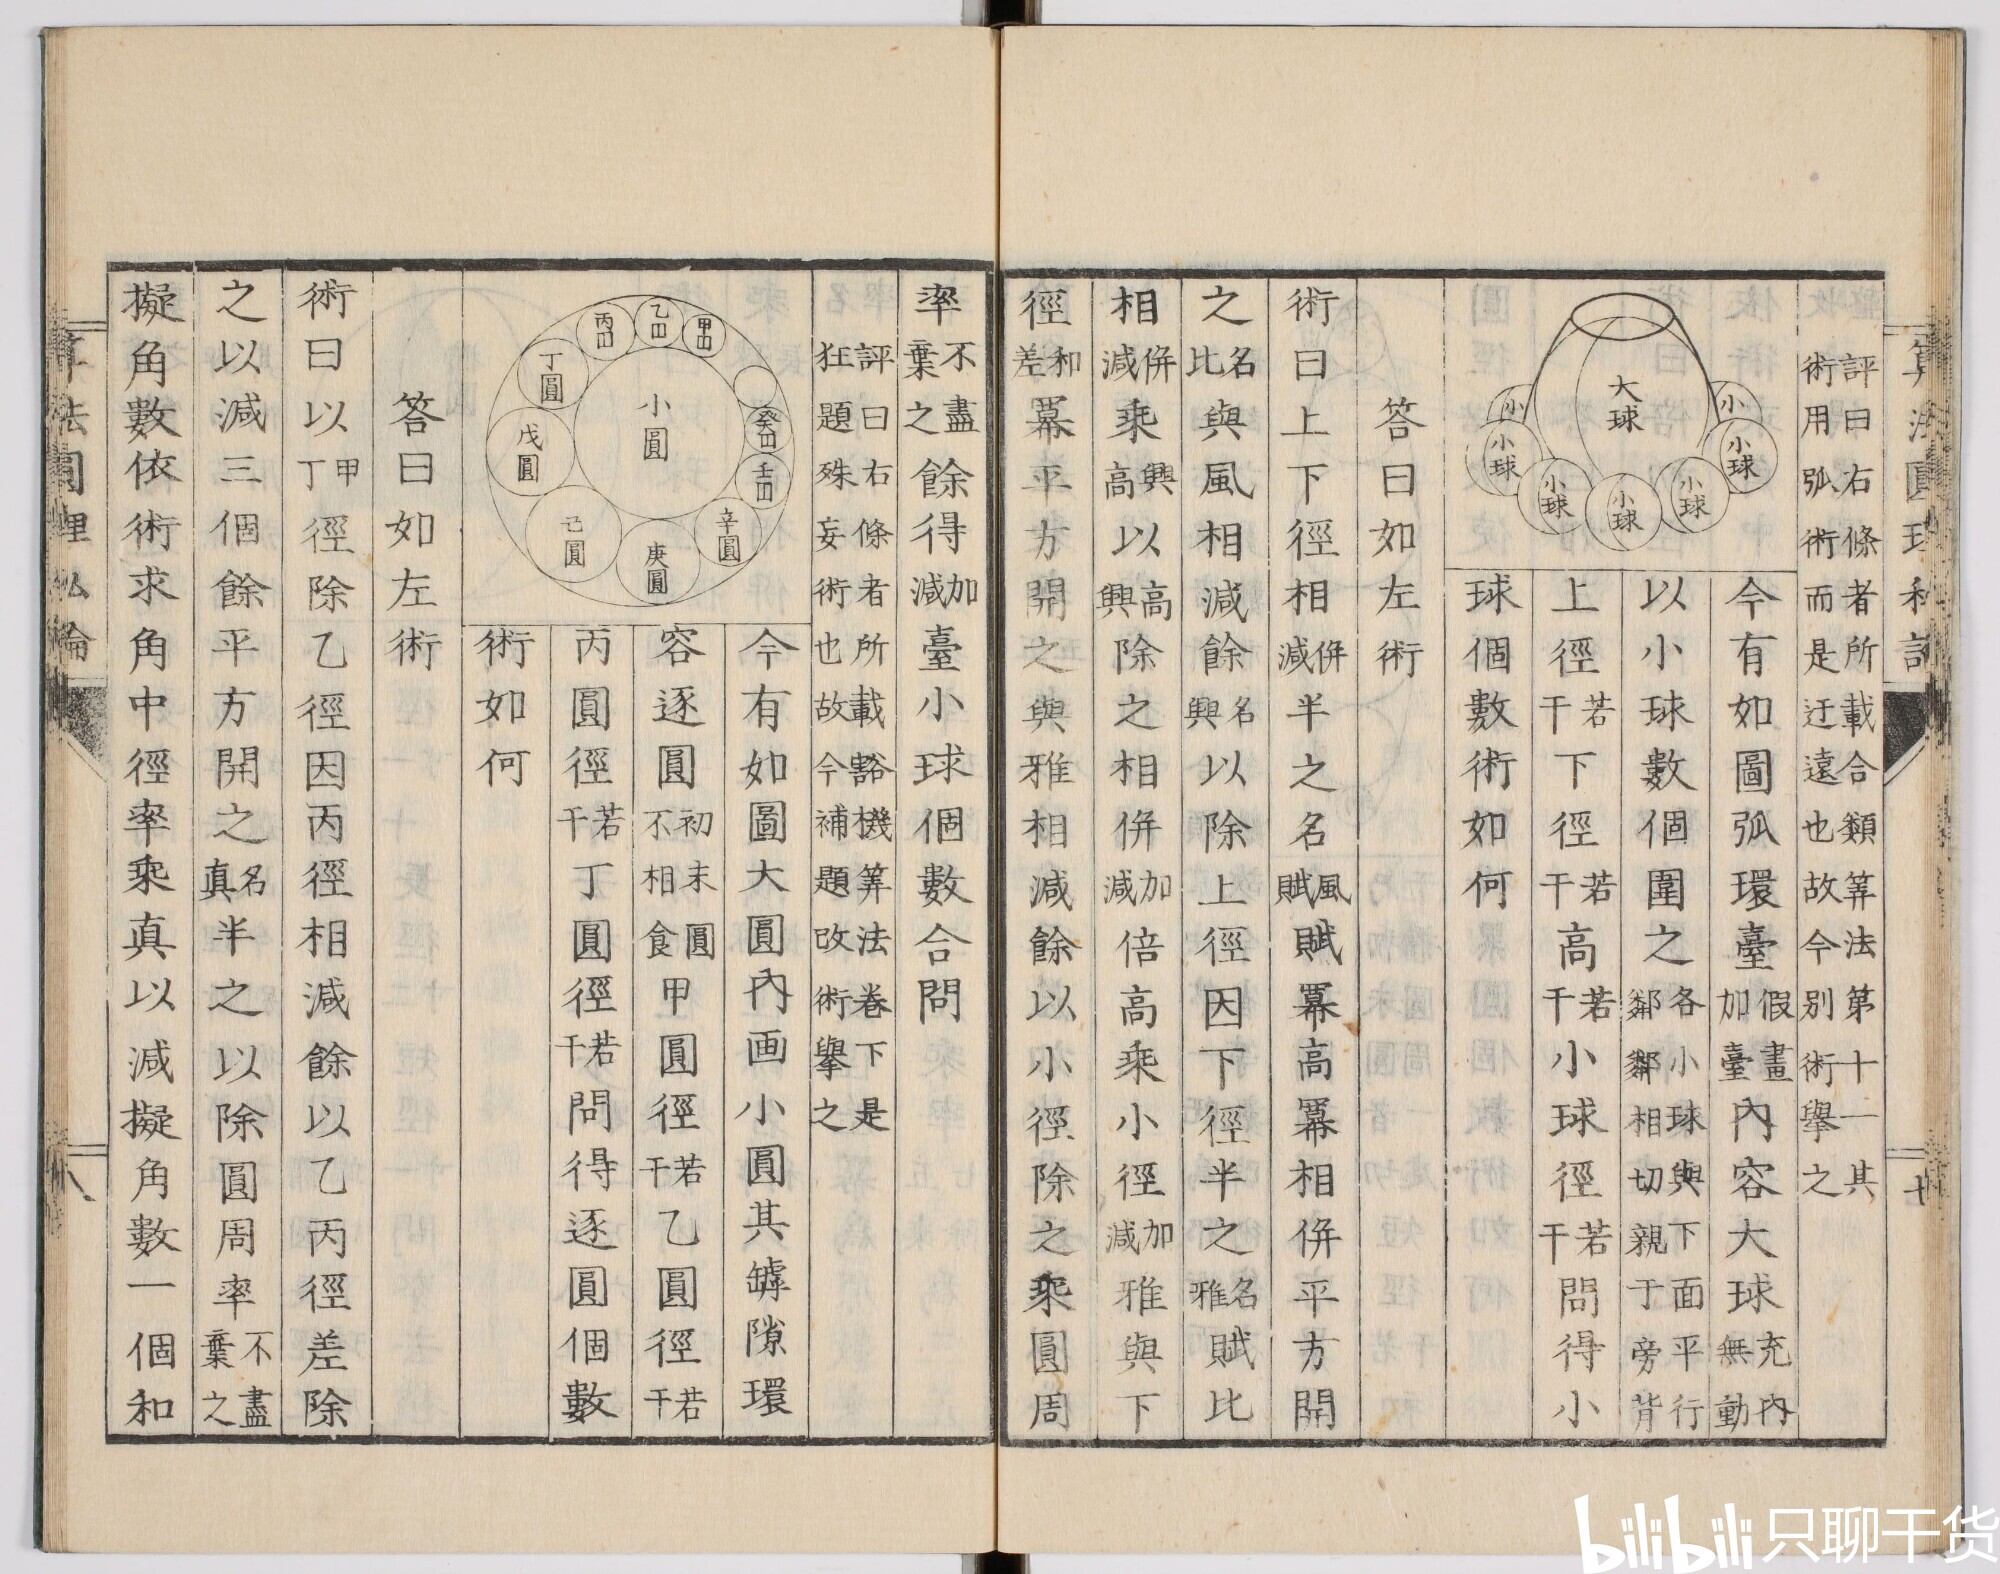 評曰右條者所載合類筭法第十一其
術用弧術而是迂遠也故今別術擧之
大球
小
小球
小球
小球
小球
小球
小
今有如圖弧環臺假畫加臺內容大球充內無動
以小球數個圍之各小球與下面平行鄰鄰相切親于旁背
上徑若干下徑若干高若干小球徑若干問得小
球個數術如何
答曰如左術
術曰上下徑相併減半之名風賦賦冪高冪相併平方開
之名比與風相減餘名興以除上徑因下徑半之名雅賦比
相併減乘興高以高興除之相併加減倍高乘小徑加減雅與下
徑和差冪平方開之與雅相減餘以小徑除之乘圓周
率不盡棄之餘得加減臺小球個數合問
評曰右條者所載豁機筭法卷下是
狂題殊妄術也故今補題改術擧之
甲円
乙円
丙円
丁圓
戊圓
己圓
庚圓
辛圓
壬円
癸円
小圓
今有如圖大圓內画小圓其罅隙環
容逐圓初末圓不相食甲圓徑若干乙圓徑若干
丙圓徑若干丁圓徑若干問得逐圓個數
術如何
答曰如左術
術曰以甲丁徑除乙徑因丙徑相減餘以乙丙徑差除
之以減三個餘平方開之名真半之以除圓周率不盡棄之
擬角數依術求角中徑率乘真以減擬角數一個和
算法圓理私論
八
七
bilibili 只聊干货